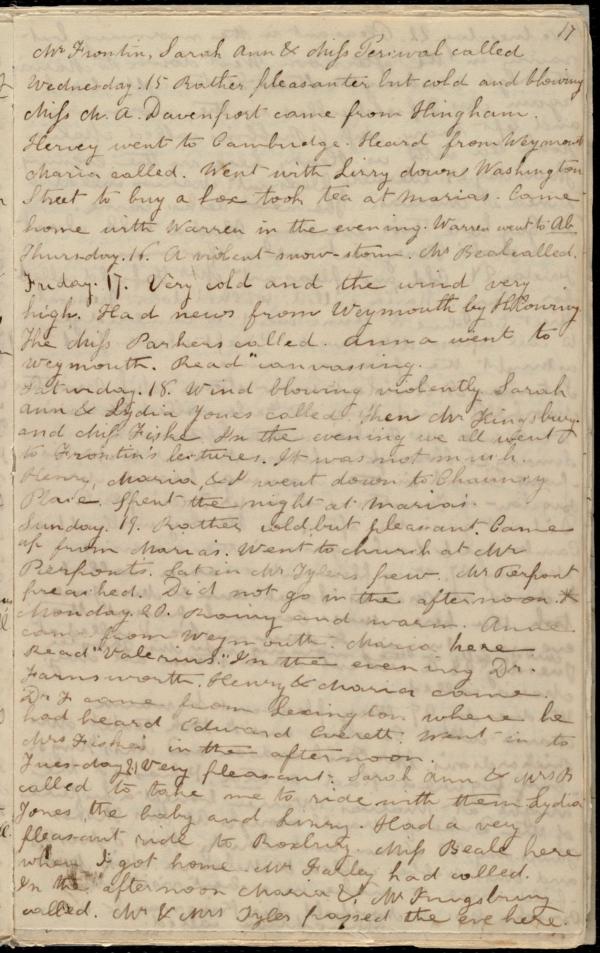 17
Mr Frontin, Sarah Ann & Miss Percival called
Wednesday. 15 Rather pleasanter but cold and blowing
Miss M. A. Davenport came from Hingham.
Hervey went to Cambridge. Heard from Weymouth
Maria called. Went with Lizzy down Washington
Street to buy a box took tea at Marias. Came
home with Warren in the evening. Warren went to Ab
Thursday. 16. A violent snow-storm. Mr Beal called.
Friday. 17. Very cold and the wind very
high. Had news from Weymouth by
The Miss Parkers called. Anna went to
Weymouth. Read "canvassing.
Saturday. 18. Wind blowing violently Sarah
Ann & Lydia Jones called then Mr Kingsbury
and Miss Fiske In the evening we all went
to Frontin's lectures. It was not much.
Henry, Maria, & I went down to Chauncy
Place. Spent the night at Maria's.
Sunday. 19. Rather cold but pleasant. Came
up from Maria's. Went to church at Mr
Pierponts. Sat in Mr Tylers pew. Mr Pierpont
preached. Did not go in the afternoon.
Monday. 20. Rainy and warm. Anna
came from Weymouth. Maria here
Read "Valerius." In the evening Dr.
Farnsworth. Henry & Maria came.
Dr F came from Lexington where he
had heard Edward Everett. Went in to
Mrs Fiske's in the afternoon.
Tuesday 21, Very pleasant. Sarah Ann & Mrs B
called to take me to ride with them Lydia
Jones, the baby and Linzy. Had a very
pleasant ride to Roxbury. Miss Beale here
when I got home. Mr Farley had called.
In the afternoon Maria & Mr Kingsbury
called. Mr & Mrs Tyler passed the eve here.